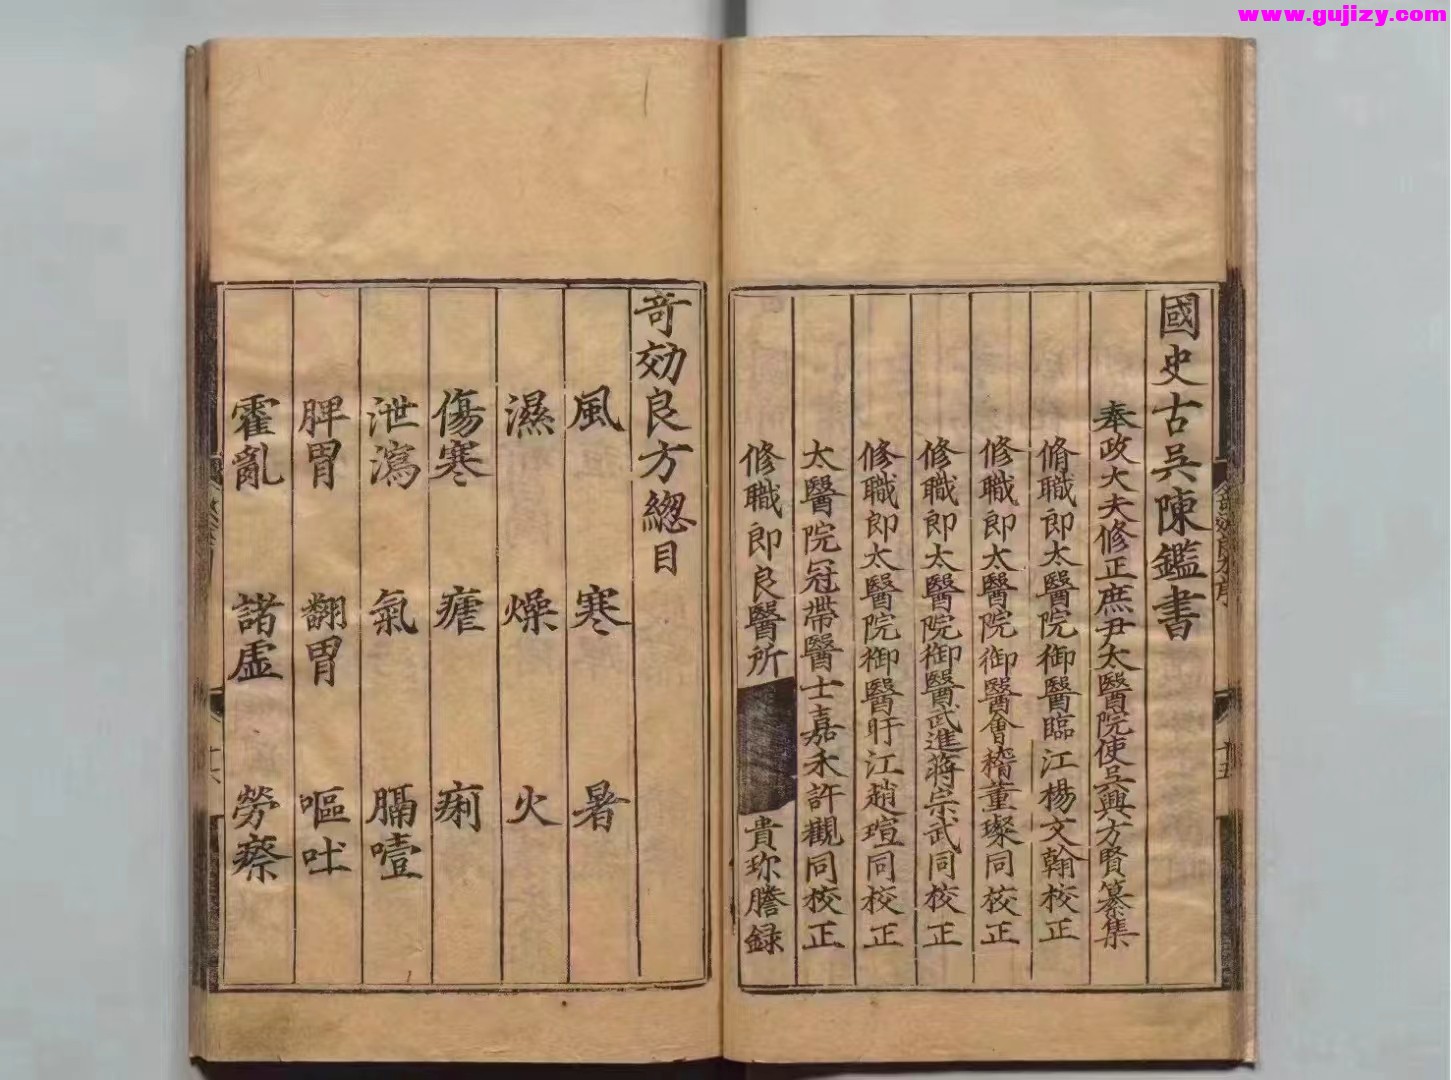 www.gujizy.com
國史古吳陳鑑書
奉政大夫修正庶尹太醫院使吳興方賢纂集
脩職郎太醫院御醫臨江楊文翰校正
修職郎太醫院御醫會稽董璨同校正
修職郎太醫院御醫武進蔣宗武同校正
修職郎太醫院御醫盱江趙瑄同校正
太醫院冠帶醫士嘉禾許觀同校正
修職郎良醫所 貴珎謄録
奇効良方序
十五
奇効良方緫目
風 寒 暑
濕 燥 火
傷寒 瘧 痢
泄瀉 氣 膈噎
脾胃 翻胃 嘔吐
霍亂 諸虛 勞瘵